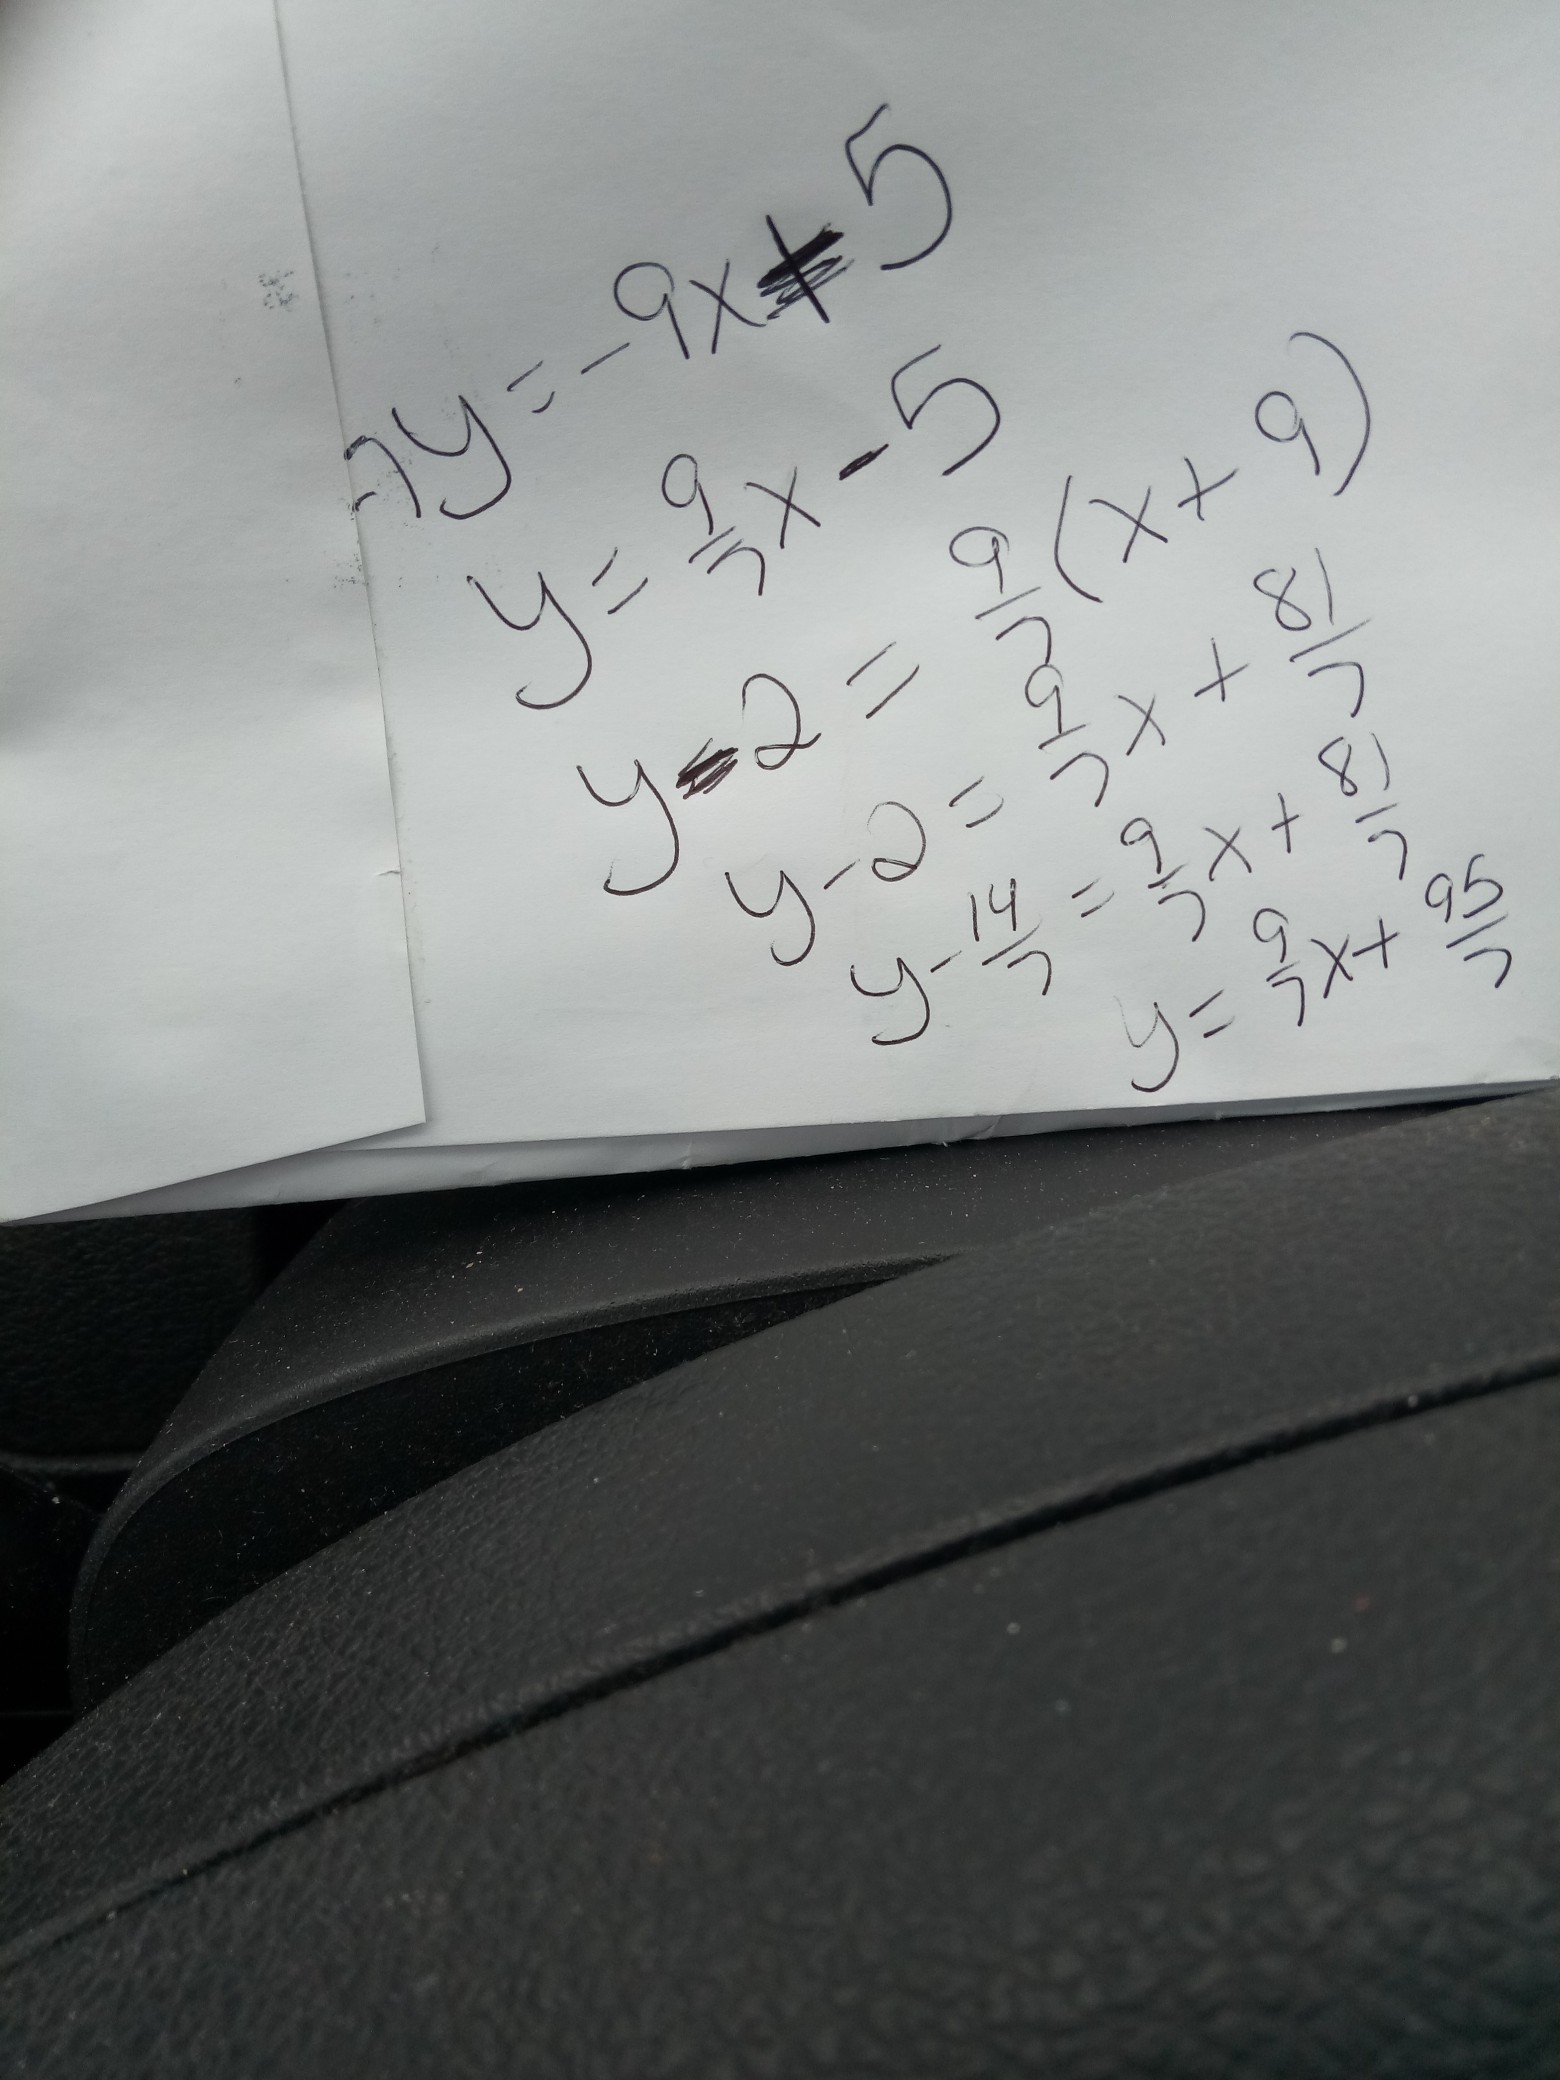 -7y = -9x + 5
y = 9/7 x - 5
y - 2 = 9/7 (x + 9)
y - 2 = 9/7 x + 81/7
y - 14/7 = 9/7 x + 81/7
y = 9/7 x + 95/7